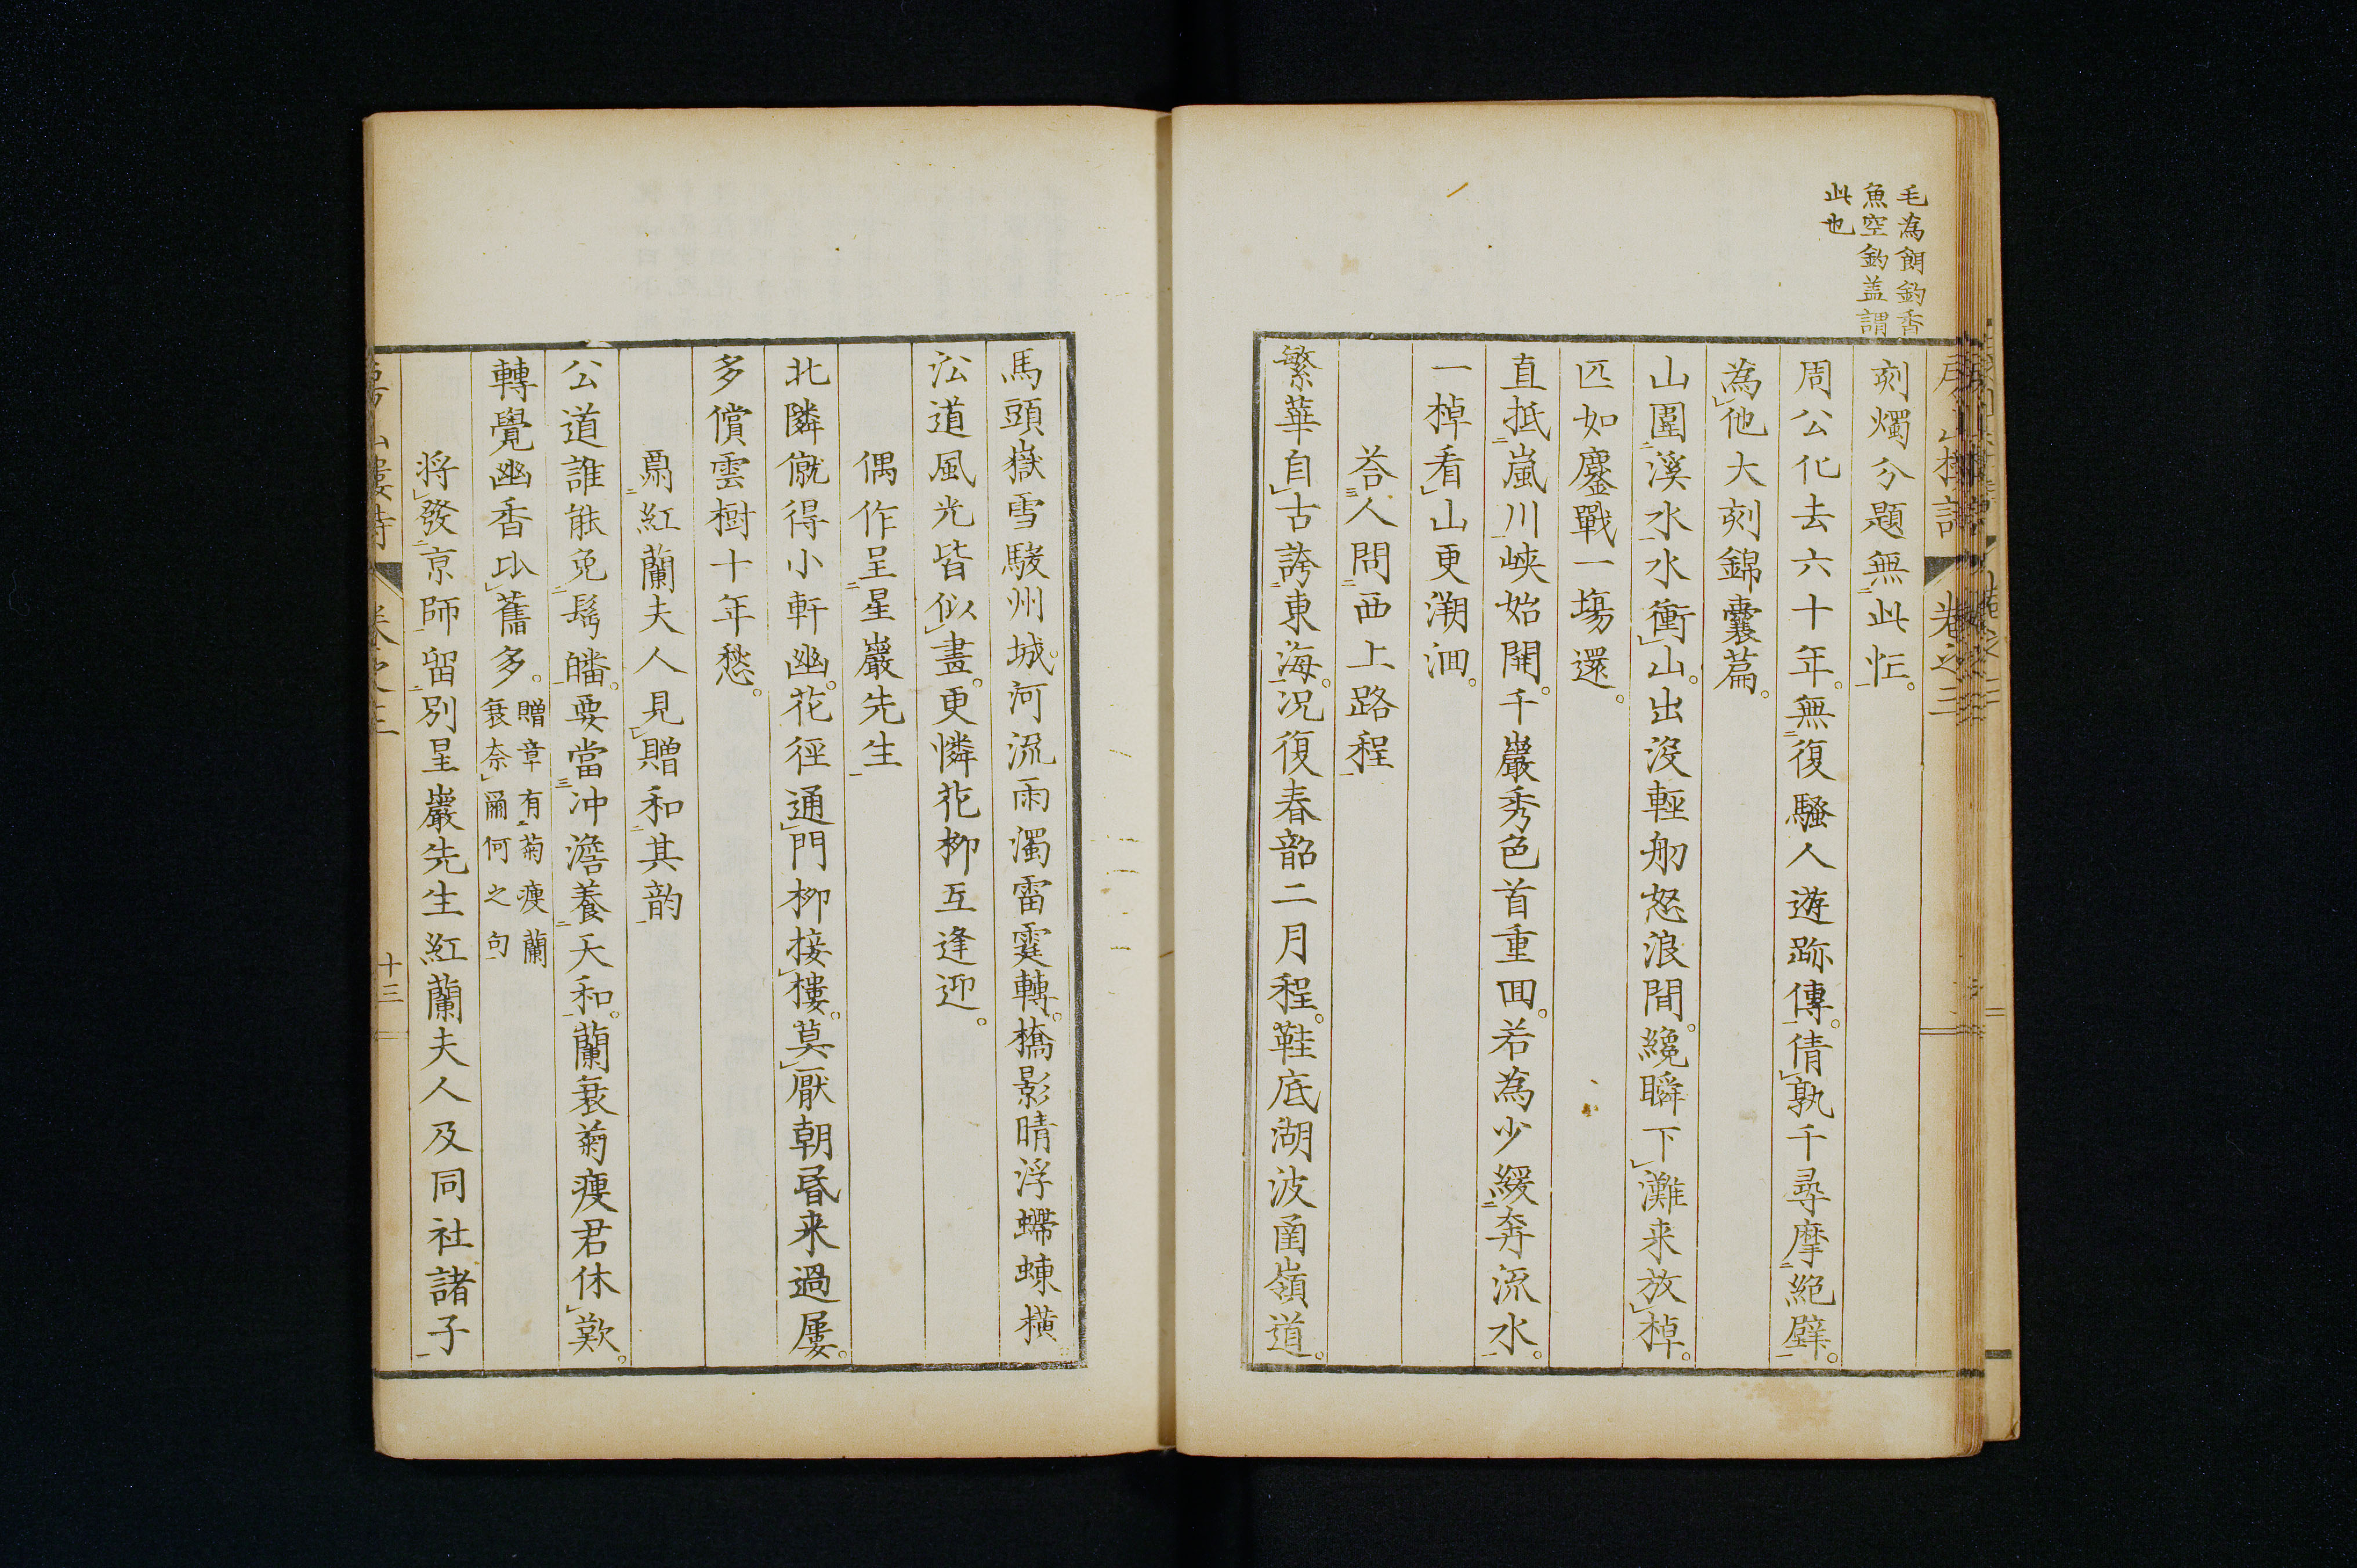 毛為餌釣香
魚空釣盖謂
此也
刻燭分題無此恇
周公化去六十年無復騷人遊跡傳倩孰千尋摩絶壁
為他大刻錦囊篇
山圍溪水水衝山出沒輕舠怒浪間纔瞬下灘来放棹
匹如鏖戰一塲還
直抵嵐川峽始開千巖秀色首重回若為少緩奔流水
一棹看山更溯洄
荅人問西上路程
繁華自古誇東海况復春韶二月程鞋底湖波函嶺道
馬頭嶽雪駿州城河流雨濁雷霆轉橋影晴浮螮蝀橫
㳂道風光皆似畫更憐花柳互逢迎
偶作呈星巖先生
北隣僦得小軒幽花徑通門柳接樓莫厭朝昏来過屢
多償雲樹十年愁
紅蘭夫人見贈和其韵
公道誰能免髩皤要當冲澹養天和蘭衰菊瘦君休歎
轉覺幽香比舊多 贈章有菊瘦蘭
衰奈爾何之句
将發京師留別星巖先生紅蘭夫人及同社諸子
卷之三
十三